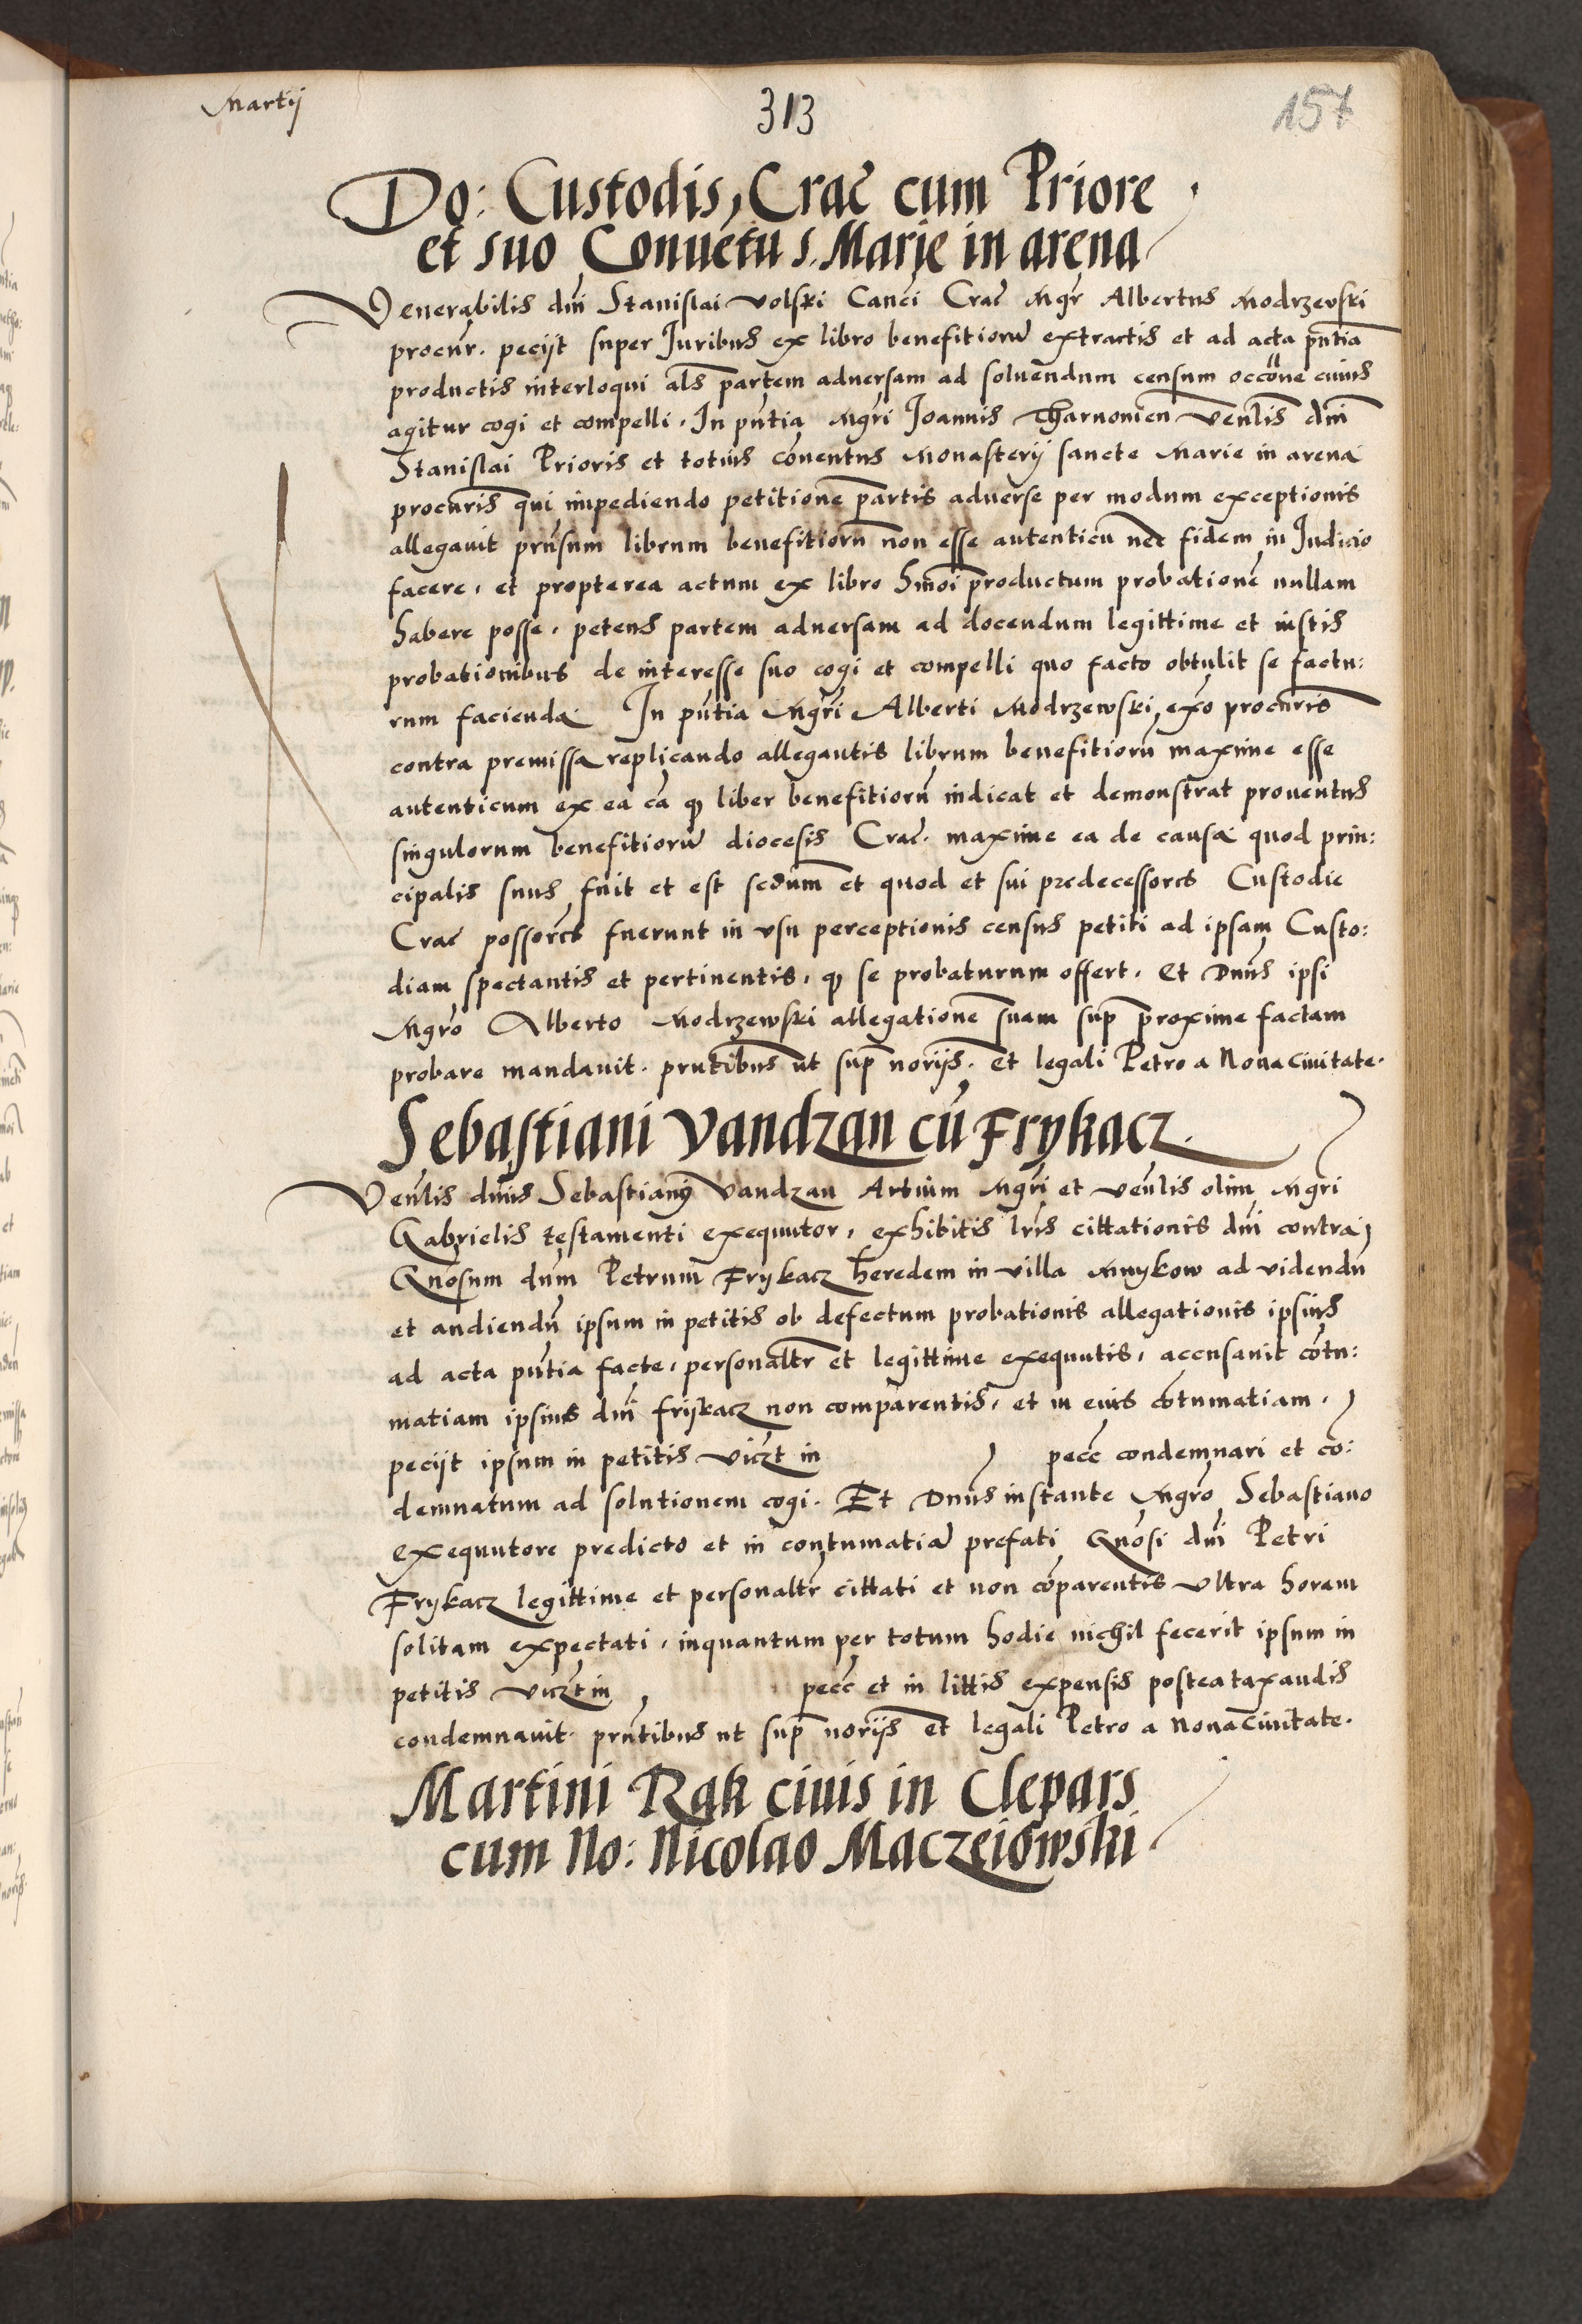 Martij
313
157
Do: Custodis, Crac̃ cum Priore
et suo Conuẽtu s. Marie in arena
Venerabilis dñi Stanislai Volski Canci Crac̃ Mgr̃ Albertus Modrzevski
procur̃. peciit super Iuribus ex libro benefitiorũ extractis et ad acta pñtia
productis interloqui als̃ partem aduersam ad soluendum censum occõne cuius
agitur cogi et compelli. In pñtia Mgr̃i Ioannis Tharnonien̄ Venlis̃ dñi
Stanislai Prioris et totius cõnentus Monasterij sancte Marie in arena
procur̃is qui impediendo petitionẽ partis aduerse per modum exceptionis
allegauit prñsum librum benefitiorũ non esse autenticũ nec fidem in Iudicio
facere, et propterea actum ex libro hm̃oi productum probationẽ nullam
habere posse. petens partem aduersam ad docendum legittime et iustis
probationibus de interesse suo cogi et compelli quo facto obtulit se factu:
rum facienda. In pñtia Mgr̃i Alberti Modrzewski, exo procur̃is
contra premissa replicando allegantis librum benefitiorũ maxime esse
autenticum ex ea cã ꝙ liber benefitiorũ indicat et demonstrat prouentus
singulorum benefitiorũ diocesis Crac̃. maxime ea de causa quod prin:
cipalis suus fuit et est et quod et sui predecessores Custodie
Crac̃ possor̃es fuerunt in vsu perceptionis census petiti ad ipsam Custo:
diam spectantis et pertinentis, ꝙ se probaturum offert. Et Dnũs ipsi
Mgr̃o Alberto Modrzewski allegationẽ suam sup̃ proxime factam
probare mandauit. prñtibus ut sup̃ norijs. et legali Petro a Noua Ciuitate.
Sebastiani Vandzan cũ Frykacz.
Venlis̃ dñus Sebastianꝰ Vandzan Artium Mgr̃i et venlis̃ olim Mgr̃i
Gabrielis testamenti exequutor, exhibitis lr̃is cittationis dñi contra
Gnõsum dñm Petrum Frykacz heredem in villa Mnykow ad videndũ
et audiendũ ipsum in petitis ob defectum probationis allegationis ipsius
ad acta pñtia facte, personaltr̃ et legittime exequutis, accusauit cõtu:
matiam ipsius dñi frykacz non comparentis, et in eius cõtumatiam,
peciit ipsum in petitis viczt in pecc̃ condemnari et cõ:
demnatum ad solutionem cogi. Et Dnũs instante Mgr̃o Sebastiano
exequutore predicto et in contumatiã prefati Gnõsi dñi Petri
Frykacz legittime et personaltr̃ cittati et non cõparentis vltra horam
solitam expectati, inquantum per totum hodie nichil fecerit ipsum in
petitis viczt in pecc̃ et in littis expensis postea taxandis
condemnauit. prñtibus ut sup̃ norijs et legali Petro a Noua Ciuitate.
Martini Rak ciuis in Clepars
cum No: Nicolao Maczeiowski